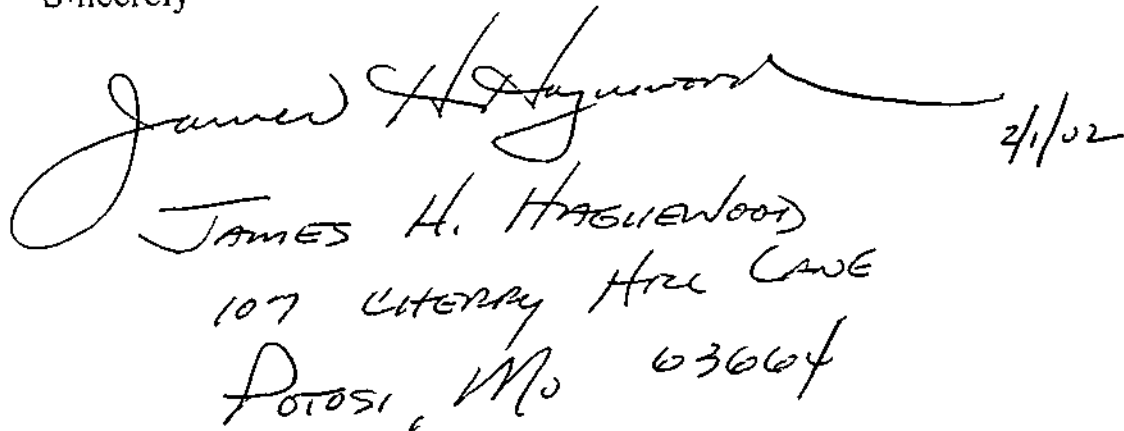 Sincerely
James H. Haguewood 2/1/02
JAMES H. HAGUEWOOD
107 CHERRY HILL LANE
POTOSI, MO 63664